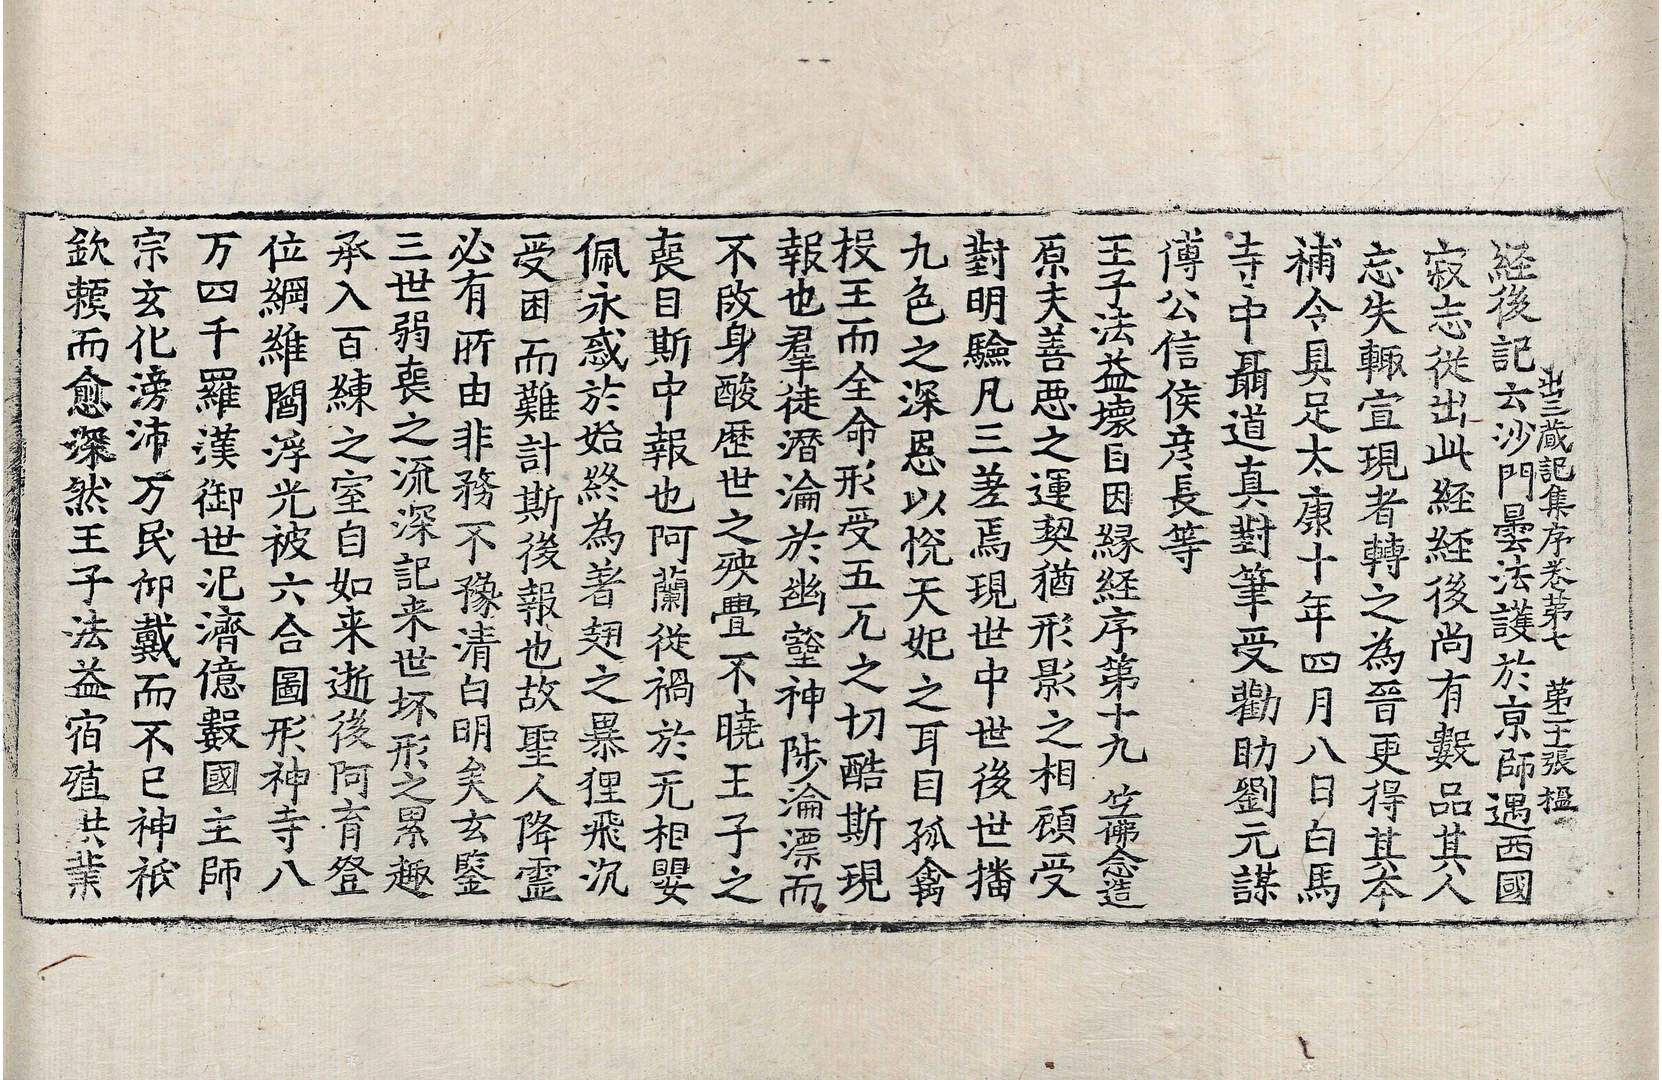 出三蔵記集序卷第七　第二十張　榲
経後記云沙門曇法護於京師遇西國
寂志從出此経経後尚有數品其人
忘失輙宣現者轉之為晉更得其本
補令具足太康十年四月八日白馬
寺中聶道真對筆受勸助劉元謀
傅公信侯彦長等
王子法益壞目因縁経序第十九　竺佛念造
原夫善惡之運契猶形影之相顧受
對明驗凡三差焉現世中世後世播
九色之深恩以悅天妃之耳目孤禽
投王而全命形受五兀之切酷斯現
報也羣徒潛淪於幽壑神陟淪漂而
不改身酸歷世之殃疊不曉王子之
喪目斯中報也阿蘭從禍於无相嬰
佩永惑於始終為著翅之暴狸飛沉
受困而難計斯後報也故聖人降霊
必有所由非務不豫清白明矣玄鑒
三世弱喪之流深記来世坏形之累趣
承入百練之室自如来逝後阿育登
位綱維閻浮光被六合圖形神寺八
万四千羅漢御世汜濟億數國主師
宗玄化滂沛万民仰戴而不已神祇
欽頼而愈深然王子法益宿殖洪業